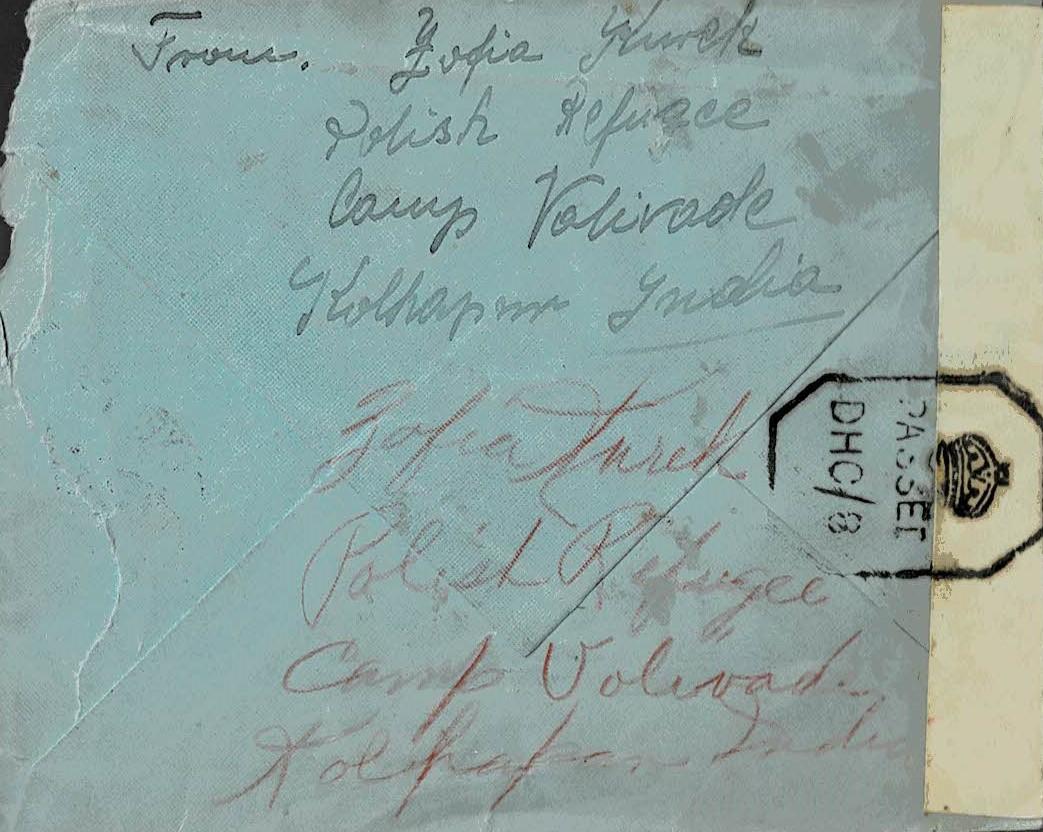 From. Zofia Kurek
Polish Refugee
Camp Valivade
Kolhapur India
Zofia Kurek
Polish Refugee
Camp Volivade
Kolhapan India
PASSED
DHC/8